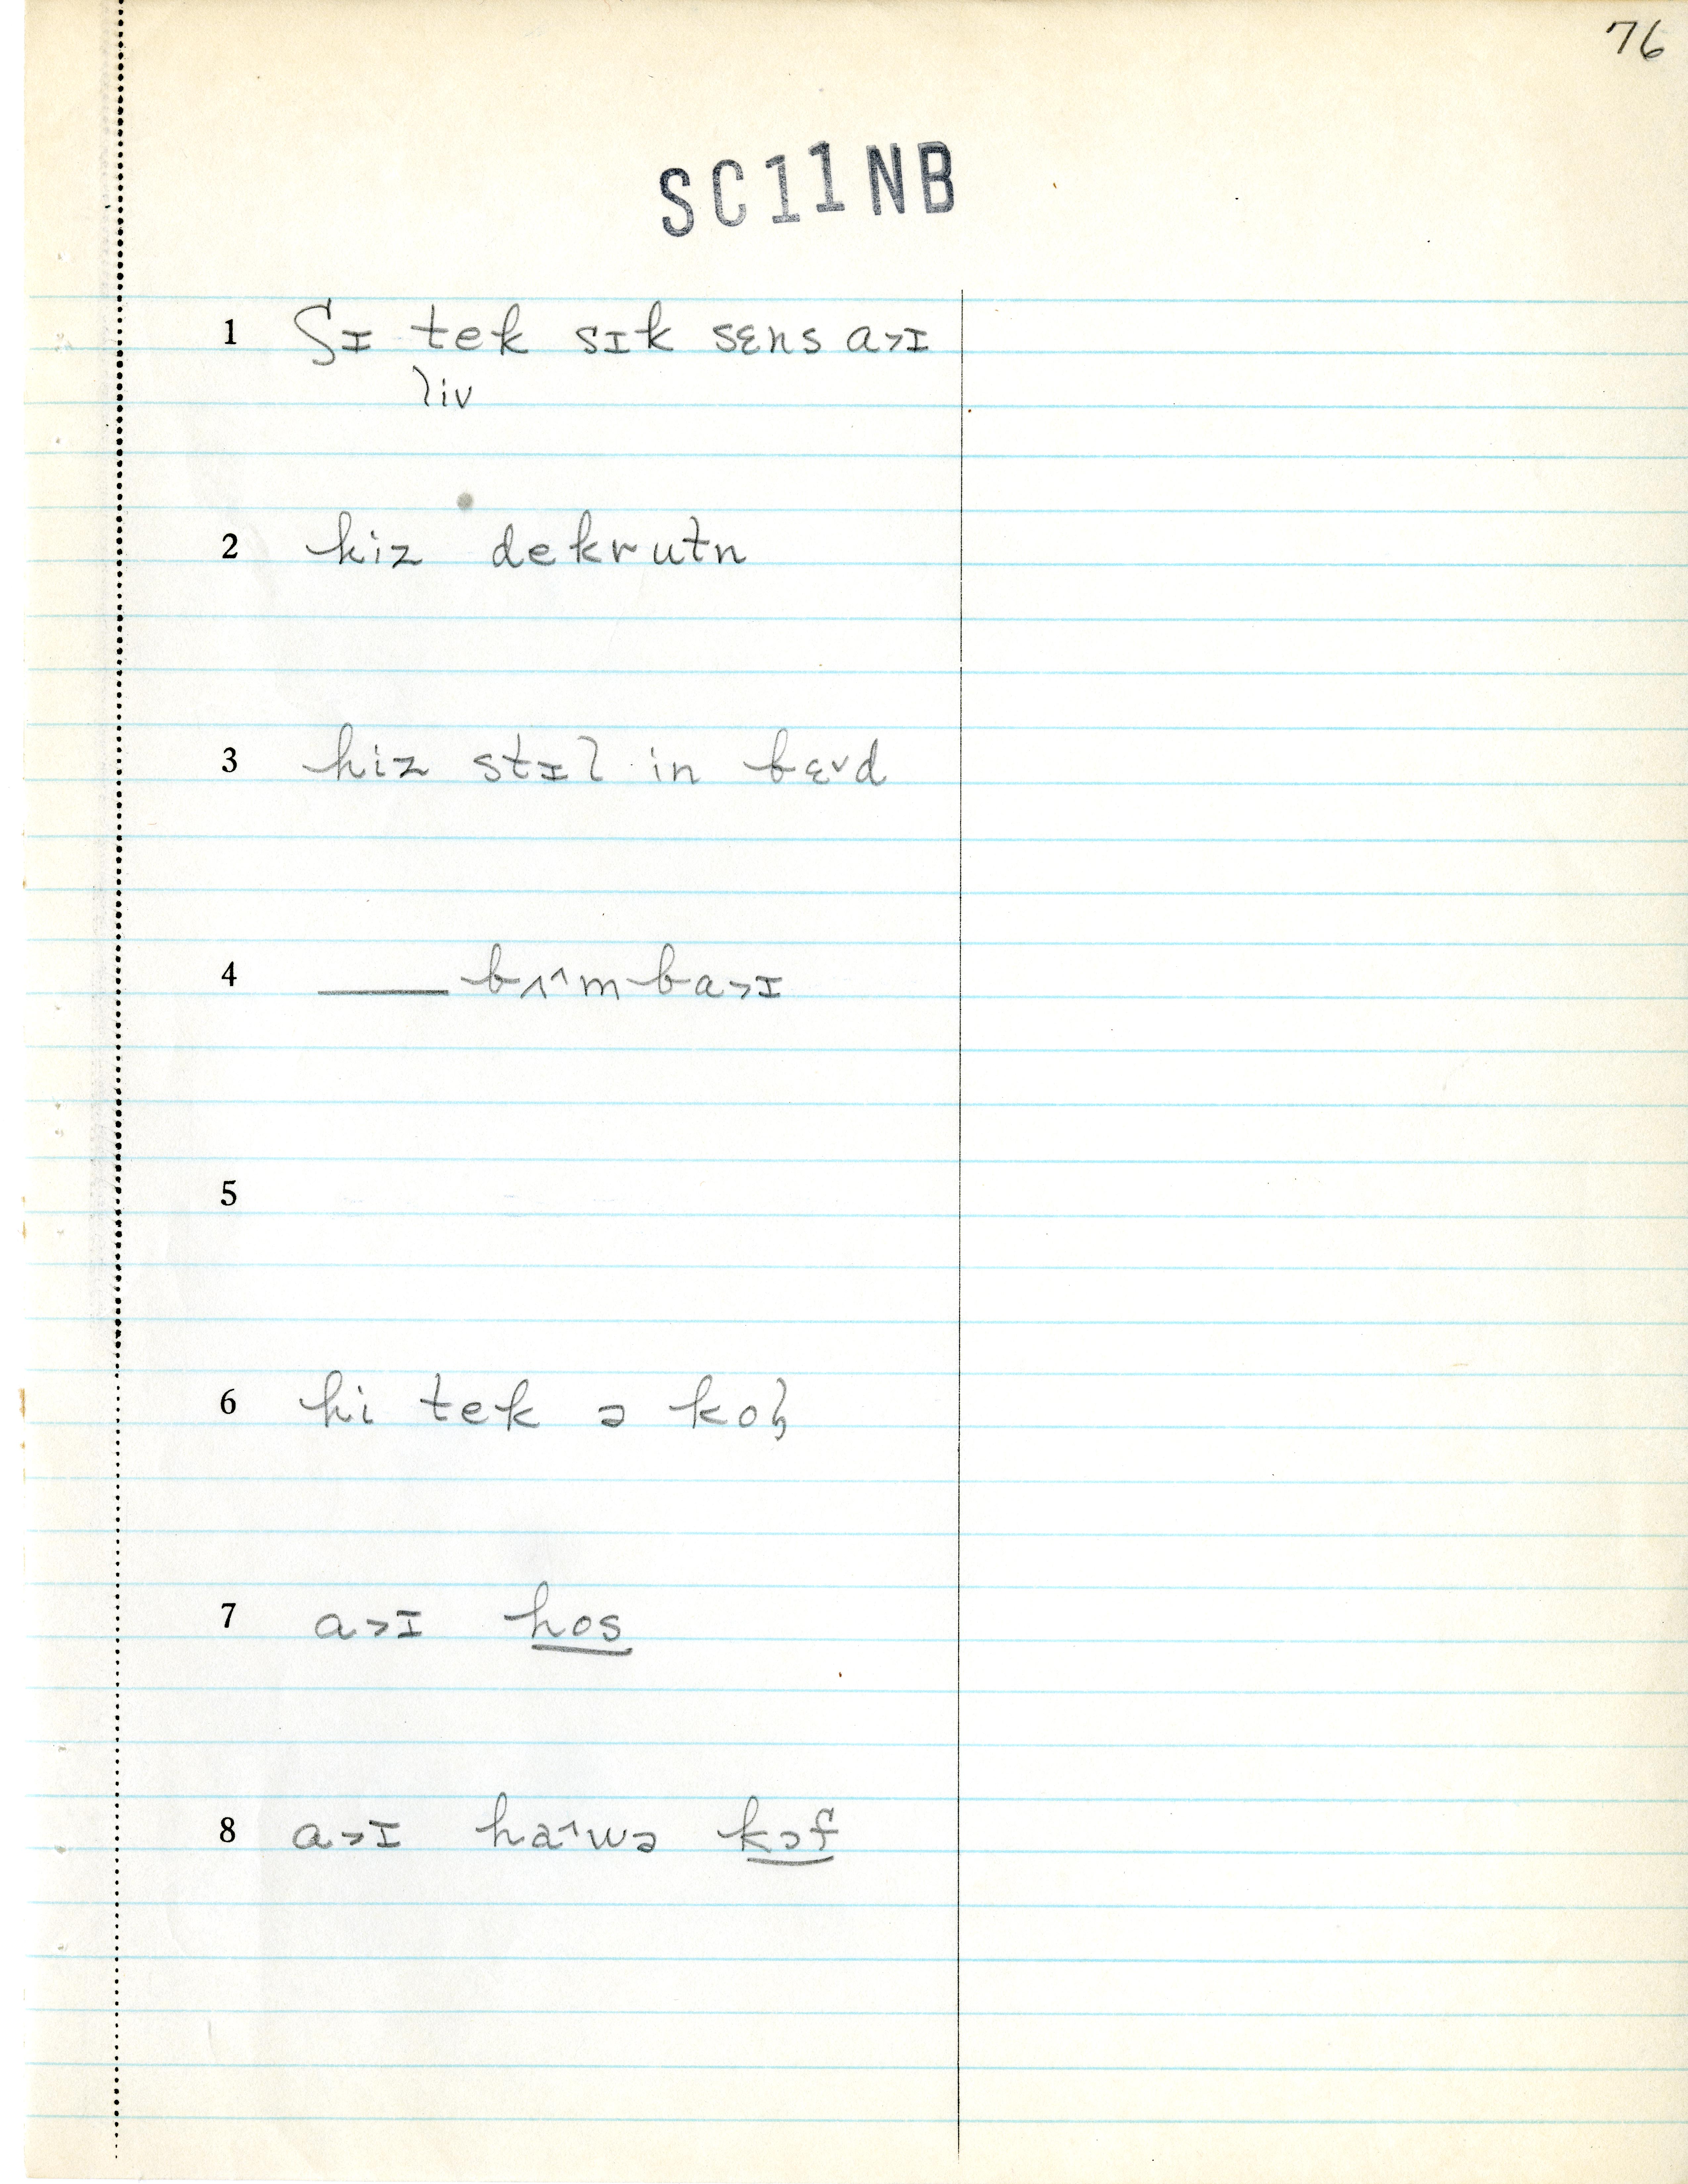 76
SC11NB
1 ʃɪ tek sɪk sɛns a˃ɪ
liv
2 hiz dekrutn
3 hiz stɪl in bɛ˅d
4 ____ bʌ^m ba˃ɪ
5
6 hi tek ə kol
7 a˃ɪ hos
8 a˃ɪ ha^wə kɔf